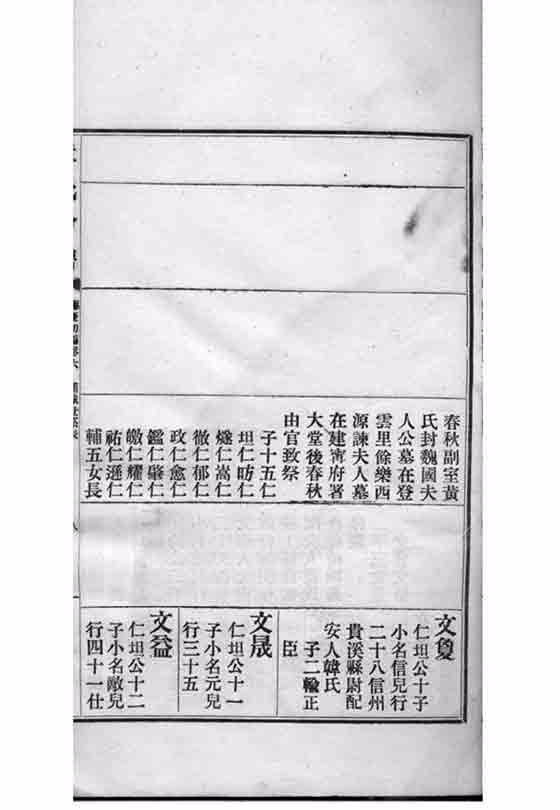 春秋副室黃
氏封魏國夫
人公墓在登
雲里餘樂西
源諫夫人墓
在建甯府署
大堂後春秋
由官致祭
子十五仁
坦仁昉仁
燧仁嵩仁
徹仁郁仁
政仁愈仁
鑑仁肇仁
皦仁耀仁
祐仁遜仁
輔五女長
文敻
仁坦公十子
小名信兒行
二十八信州
貴溪縣尉配
安人韓氏
子二輪正
臣
文晟
仁坦公十一
子小名元兒
行三十五
文益
仁坦公十二
子小名敵兒
行四十一仕